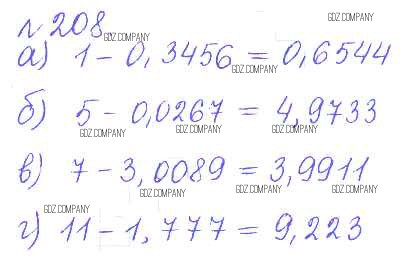 GDZ.COMPANY
№ 208
GDZ.COMPANY
а) 1 - 0,3456 = 0,6544
GDZ.COMPANY
б) 5 - 0,0267 = 4,9733
GDZ.COMPANY GDZ.COMPANY GDZ.COMPANY
в) 7 - 3,0089 = 3,9911
GDZ.COMPANY GDZ.COMPANY GDZ.COMPANY
GDZ.COMPANY
г) 11 - 1,777 = 9,223